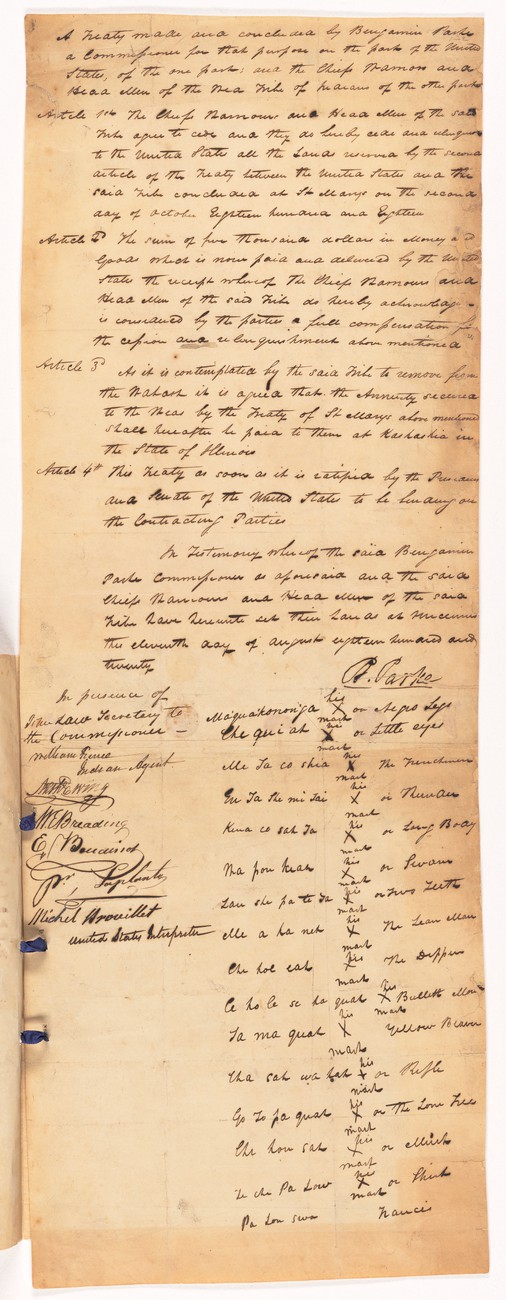 A Treaty made and concluded by Benjamin Parke
a Commissioner for that purpose on the part of the United
States, of the one part; and the Chiefs Warriors and
Head Men of the Wea Tribe of Indians of the other part
Article 1st The Chiefs Warriours and Head Men of the said
Tribe agree to cede and they do hereby cede and relinquish
to the United States all the Lands reserved by the second
article of the Treaty between the United States and the
said Tribe concluded at St Marys on the second
day of October Eighteen hundred and Eighteen
Article 2d The sum of five thousand dollars in Money and
Goods which is now paid and delivered by the United
States the receipt whereof the Chiefs Warriours and
Head Men of the said Tribe do hereby acknowledge
is considered by the parties a full compensation for
the cession and relinquishment above mentioned
Article 3d As it is contemplated by the said Tribe to remove from
the Wabash it is agreed that the Annuity secured
to the Weas by the Treaty of St Marys above mentioned
shall hereafter be paid to them at Kaskaskia in
the State of Illinois
Article 4th This Treaty as soon as it is ratified by the President
and Senate of the United States to be binding on
the Contracting Parties
In Testimony whereof the said Benjamin
Parke Commissioner as aforesaid and the said
Chiefs Warriours and Head Men of the said
Tribe have hereunto set their hands at Vincennes
this eleventh day of August eighteen hundred and
twenty
B. Parke
In presence of
John Law Secretary to
the Commissioner —
William Prince
Indian Agent
W Breading
E Boudinot
Pr. Laplante
Michel Brouillet
United States Interpreter
Maquakononga his X mark or Negro Legs
Che qui ah his X mark or Little eyes
Me Ta co shia his X mark The Frenchman
his X mark or Thunder
Kena co sah Ta his X mark or Long Body
Ma pon keah his X mark or Swan
Lau she pa te Ta his X mark or Two Teeth
Me a ha net his X mark The Lean Man
Che hoe eah his X mark The Dipper
Ce ho Ce se ha quah his X mark Bullett Mou
Ta ma quah his X mark Yellow Beaver
Cha sah wa hah his X mark or Rifle
Go To pa quah his X mark or the Lone Tree
Che kou sah his X mark or Mink
Te che Pa Low his X mark or Shirt
Pa Lou swa Francis